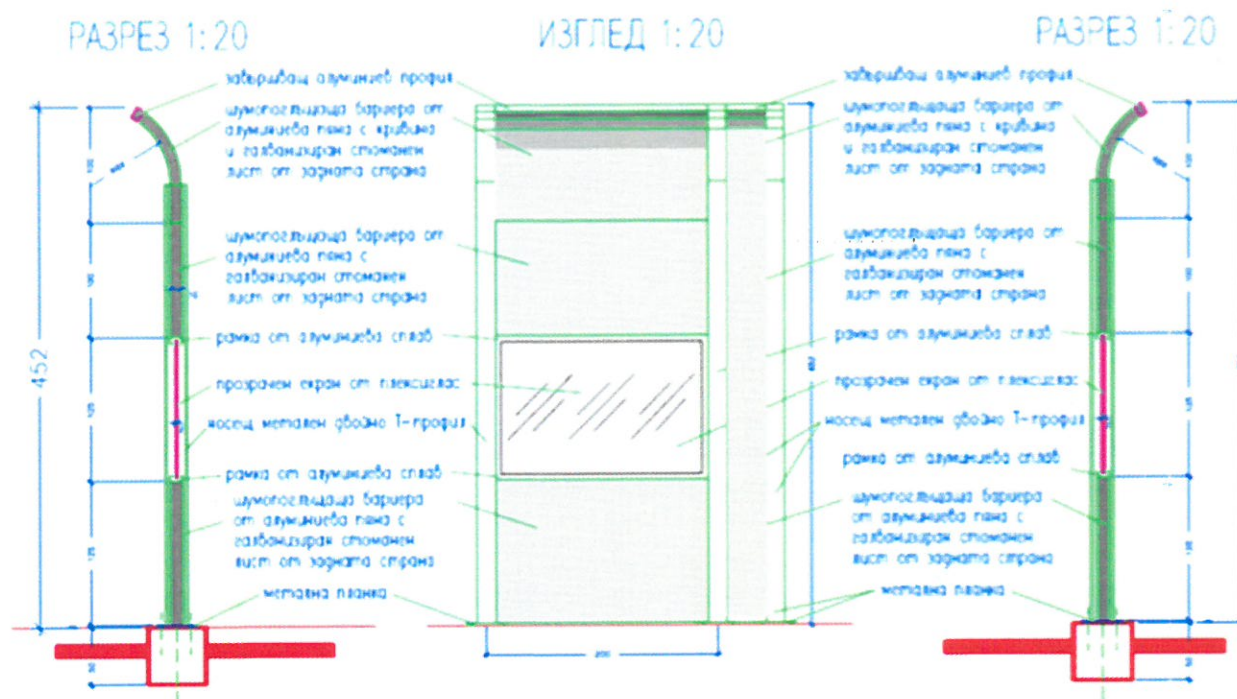 РАЗРЕЗ 1:20
ИЗГЛЕД 1:20
РАЗРЕЗ 1:20
завършващ алуминиев профил
шумопоглъщаща бариера от
алуминиева пяна с кривина
и галванизиран стоманен
лист от задната страна
шумопоглъщаща бариера от
алуминиева пяна с
галванизиран стоманен
лист от задната страна
рамка от алуминиева сплав
прозрачен екран от плексиглас
носещ метален двойно Т-профил
рамка от алуминиева сплав
шумопоглъщаща бариера
от алуминиева пяна с
галванизиран стоманен
лист от задната страна
метална планка
452
200
завършващ алуминиев профил
шумопоглъщаща бариера от
алуминиева пяна с кривина
и галванизиран стоманен
лист от задната страна
шумопоглъщаща бариера от
алуминиева пяна с
галванизиран стоманен
лист от задната страна
рамка от алуминиева сплав
прозрачен екран от плексиглас
носещ метален двойно Т-профил
рамка от алуминиева сплав
шумопоглъщаща бариера
от алуминиева пяна с
галванизиран стоманен
лист от задната страна
метална планка